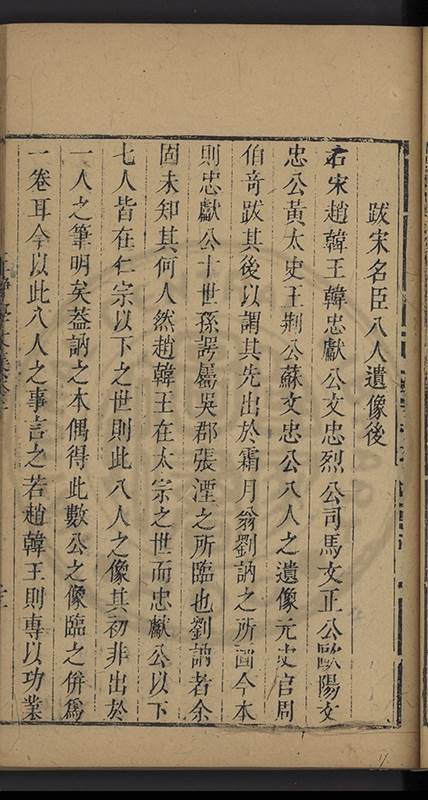 跋宋名臣八人遺像後
右宋趙韓王韓忠獻公文忠烈公司馬文正公歐陽文
忠公黃太史王荆公蘇文忠公八人之遺像元史官周
伯竒跋其後以謂其先出於霜月翁劉訥之所圖今本
則忠獻公十世孫諤屬吳郡張湮之所臨也劉訥者余
固未知其何人然趙韓王在太宗之世而忠獻公以下
七人皆在仁宗以下之世則此八人之像其初非出於
一人之筆明矣葢訥之本偶得此數公之像臨之併爲
一卷耳今以此八人之事言之若趙韓王則專以功業